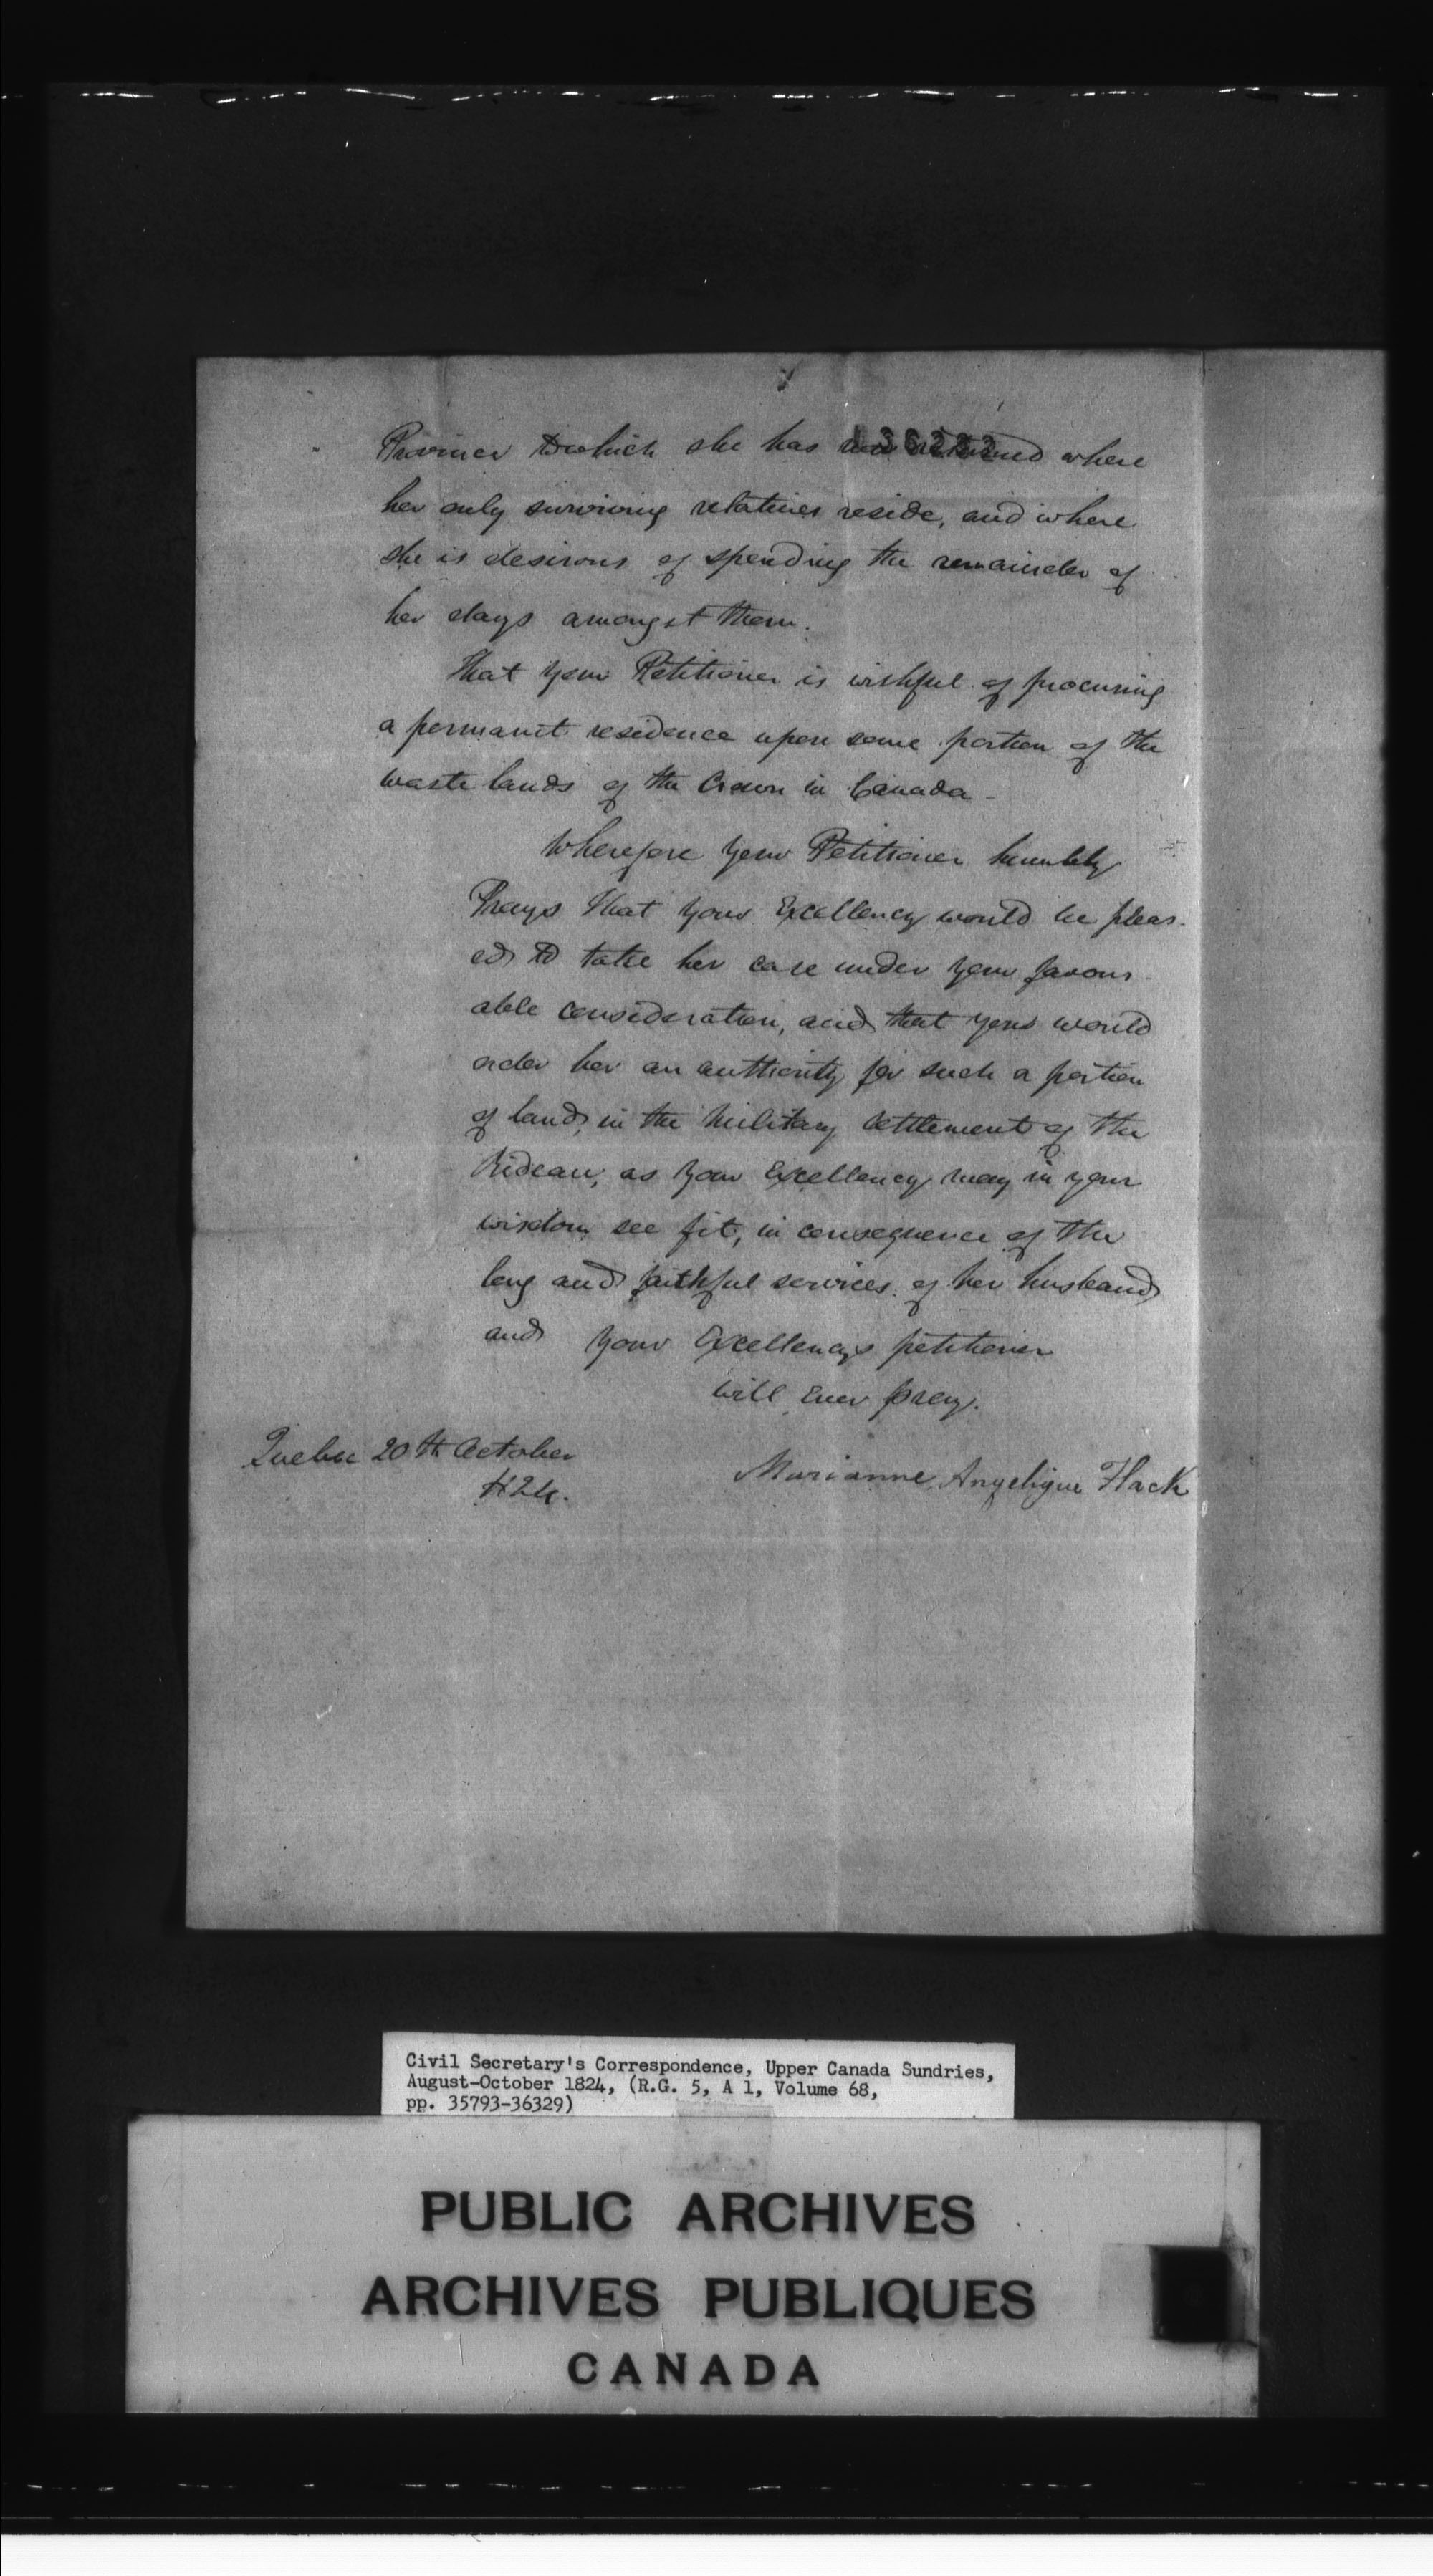 136222
Province to which she has now returned where
her only surviving relatives reside, and where
she is desirous of spending the remainder of
her days amongst them.
That your Petitioner is wishful of procuring
a permanit residence upon some portion of the
waste lands of the Crown in Canada -
Wherefore your Petitioner humbly
Prays that your Excellency would be pleas-
ed to take her case under your favour-
able consideration, and that your would
order her an authority for such a portion
of land, in the Military Settlement of the
Rideau, as your Excellency may in your
wisdom see fit, in consequence of the
long and faithful services of her husband
and your Excellencys petitioner
will ever pray.
Quebec 20th October
1824.
Marianne Angelique Flack
Civil Secretary's Correspondence, Upper Canada Sundries,
August-October 1824, (R.G. 5, A 1, Volume 68,
pp. 35793-36329)
PUBLIC ARCHIVES
ARCHIVES PUBLIQUES
CANADA